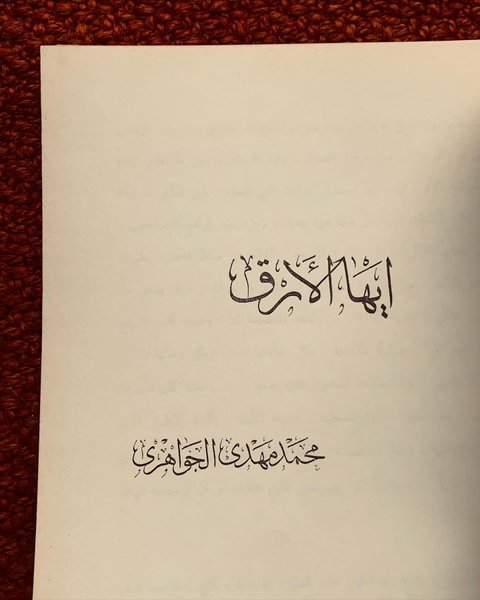 ايها الأرق
محمد مهدي الجواهري